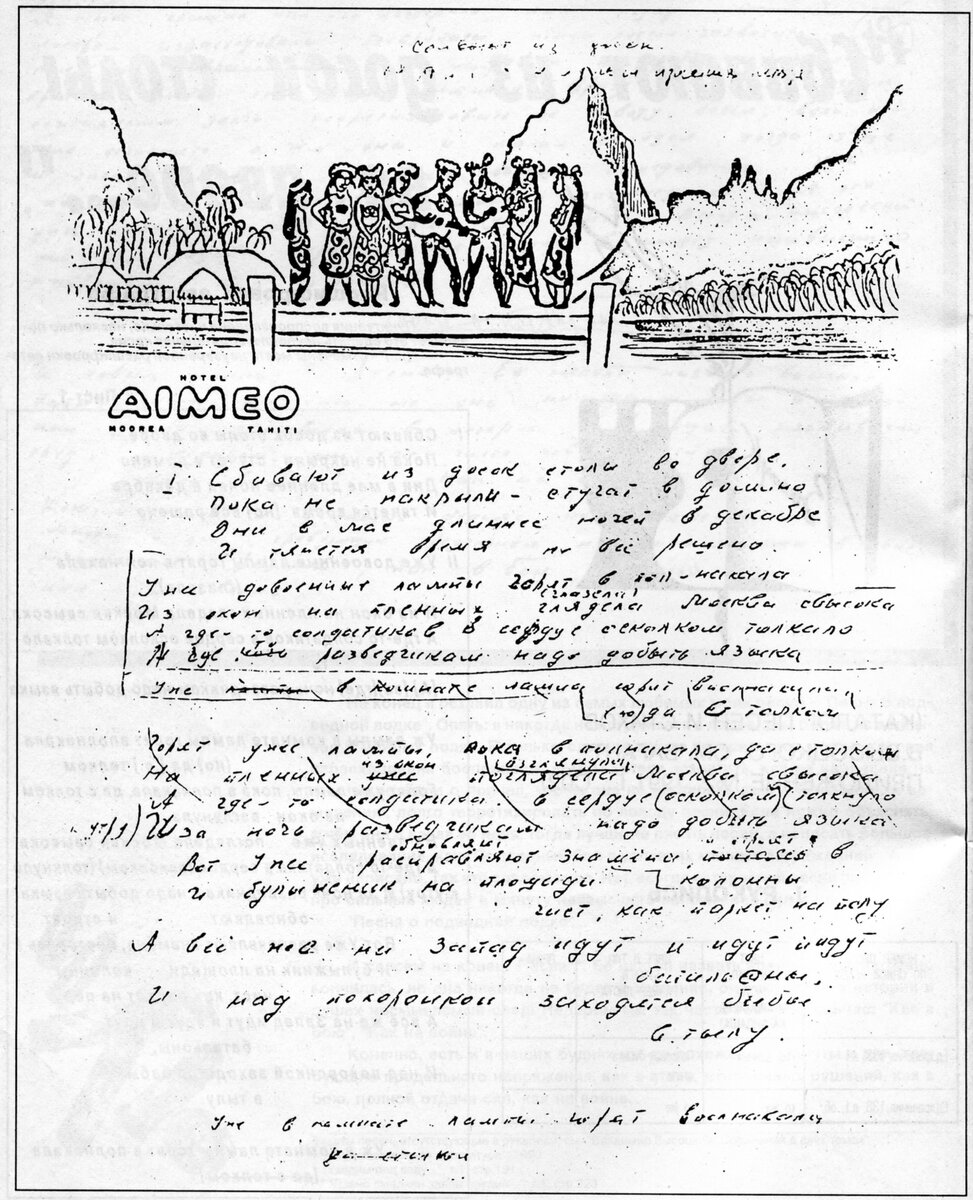 Сбивают из досок
HOTEL
AIMEO
MOOREA TAHITI
I Сбивают из досок столы во дворе.
Пока не накрыли – стучат в домино
Дни в мае длиннее ночей в декабре
И тянется время но всё решено.
Уже довоенные лампы горят в пол-накала
(глазела)
Из окон на пленных глядела Москва свысока
А где-то солдатиков в сердце осколком толкало
А где-то разведчикам надо добыть языка
Уже в комнате лампы горят вполнакала
да с толком
Горят уже лампы, пока в полнакала, да с толком
из окон взглянула
На пленных уже поглядела Москва свысока
А где-то солдатика в сердце (осколком) (толкнуло
И за ночь разведчикам надо добыть языка.
обновляют и строят
Вот уже расправляют знамёна в
И булыжник на площади колонны
чист, как паркет на полу
А всё же на запад идут и идут и идут
батальоны,
И над похоронкой заходятся бабы
в тылу.
Уже в комнате лампы горят вполнакала